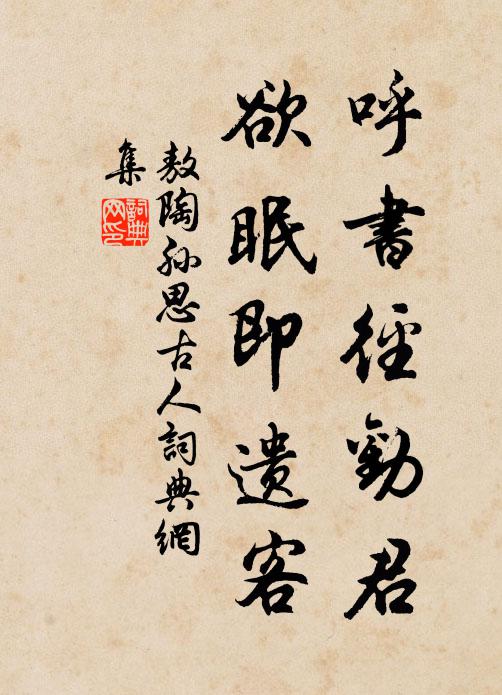 呼書徑勸君
欲眠即遺客
敖陶孫思古人詞典網
集
詞典
网印